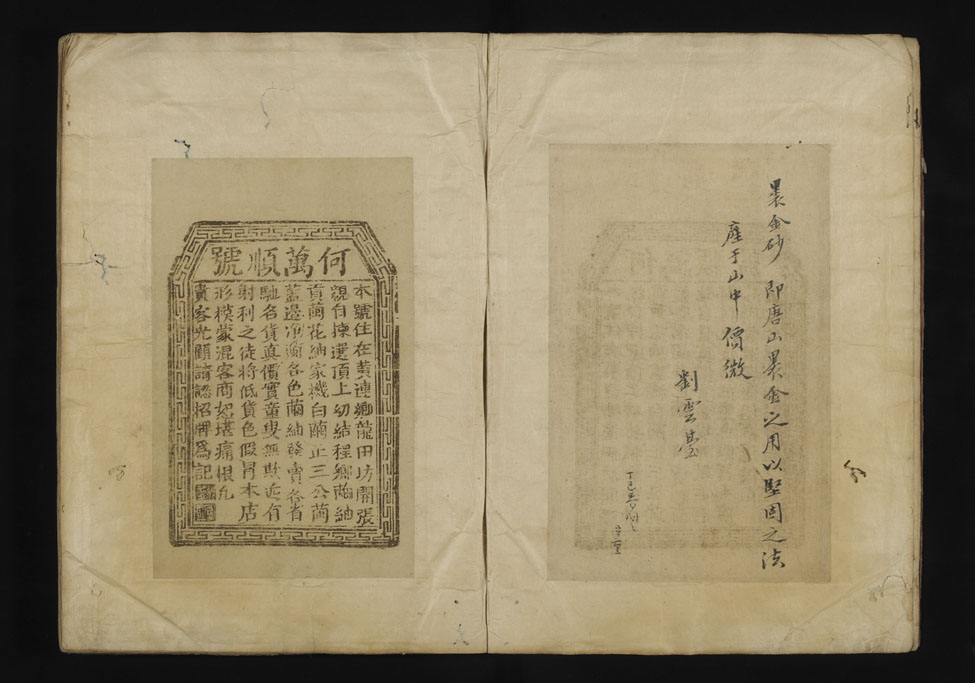 金砂 即唐山金之用以堅固之法
産于山中價微
劉雲臺
丁巳五月
何萬順號
本號住在黃連鄉龍田坊開張
親自揀選頂上幼結程鄉繭紬
貢繭花紬家機白繭止三公繭
藍邊各色繭紬發賣各省
馳名貨真價實童叟無欺近有
射利之徒將低貨色假冐本店
形模蒙混客商堪痛恨凡
貴客光顧請認招牌爲記